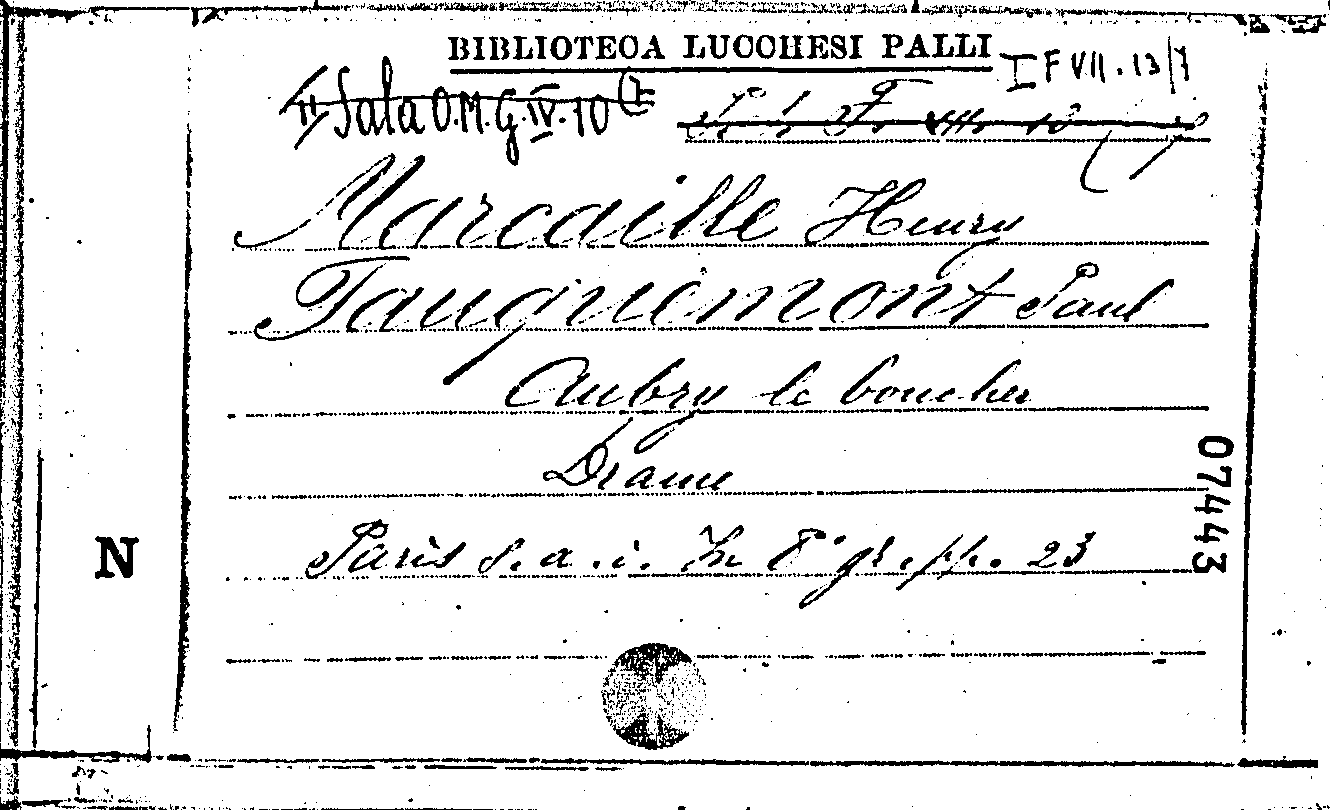 BIBLIOTECA LUCCHESI PALLI
I F VII. 13/7
II Sala O.M.G.IV.10
Marcaille Henry
Fauquemont Paul
Aubry le boucher
Drame
Paris s. a. i. In 8° gr. pp. 23
N
07443